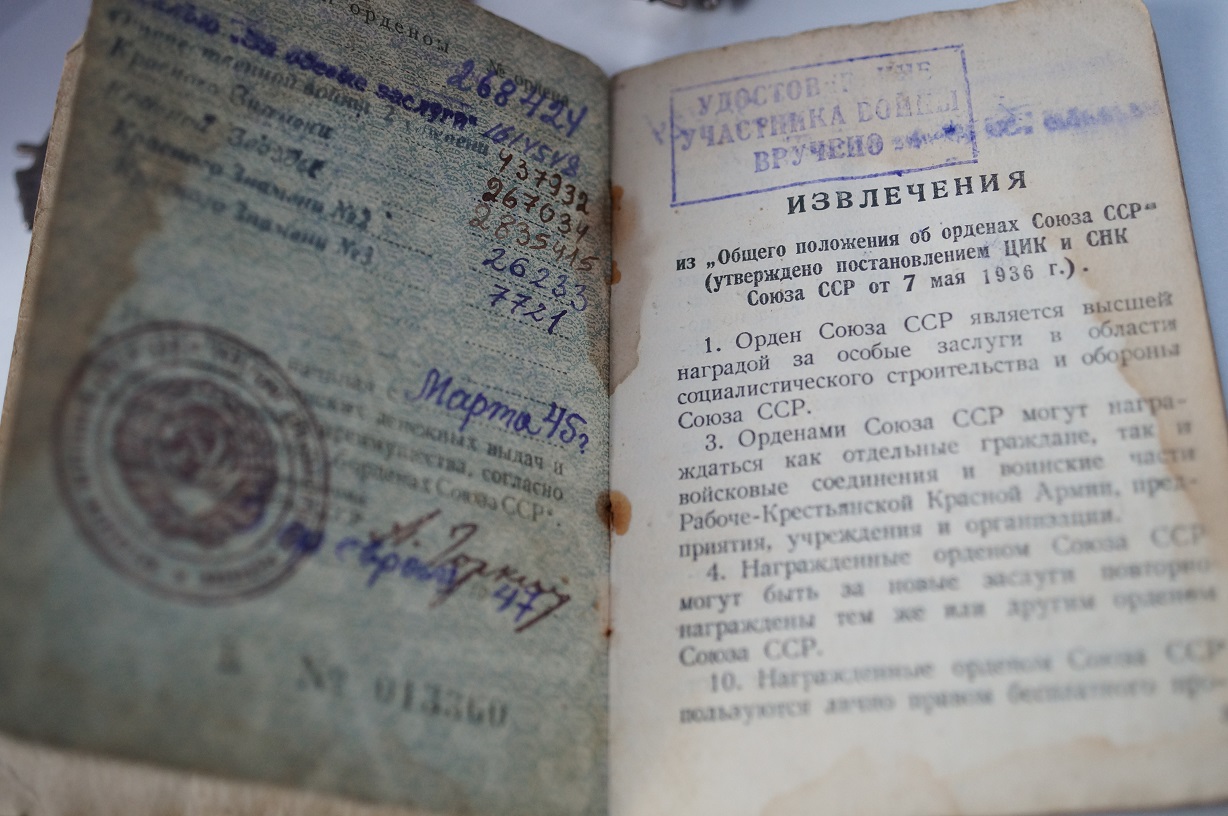 орденом
№ ордена
268424
"За боевые заслуги" 1614549
Отечественной войны 2 степени 437932
Красного Знамени 267034
Красной Звезды 2835415
Красного Знамени №2 26233
Красного Знамени №3 7721
Марта 45г.
денежных выдач и
преимущества, согласно
орденах Союза ССР".
А. Горкин
47
№ 013360
УДОСТОВ
УЧАСТНИКА ВОЙНЫ
ВРУЧЕНО
ИЗВЛЕЧЕНИЯ
из „Общего положения об орденах Союза ССР“
(утверждено постановлением ЦИК и СНК
Союза ССР от 7 мая 1936 г.).
1. Орден Союза ССР является высшей
наградой за особые заслуги в области
социалистического строительства и обороны
Союза ССР.
3. Орденами Союза ССР могут награ-
ждаться как отдельные граждане, так и
войсковые соединения и воинские части
Рабоче-Крестьянской Красной Армии, пред-
приятия, учреждения и организации.
4. Награжденные орденом Союза ССР
могут быть за новые заслуги повторно
награждены тем же или другим орденом
Союза ССР.
10. Награжденные орденом Союза ССР
пользуются лично правом бесплатного про-